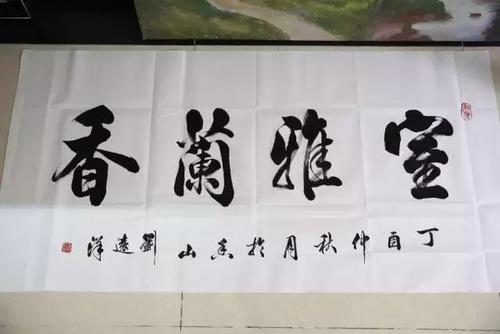 室雅蘭香
丁酉仲秋月於香山劉遠洋